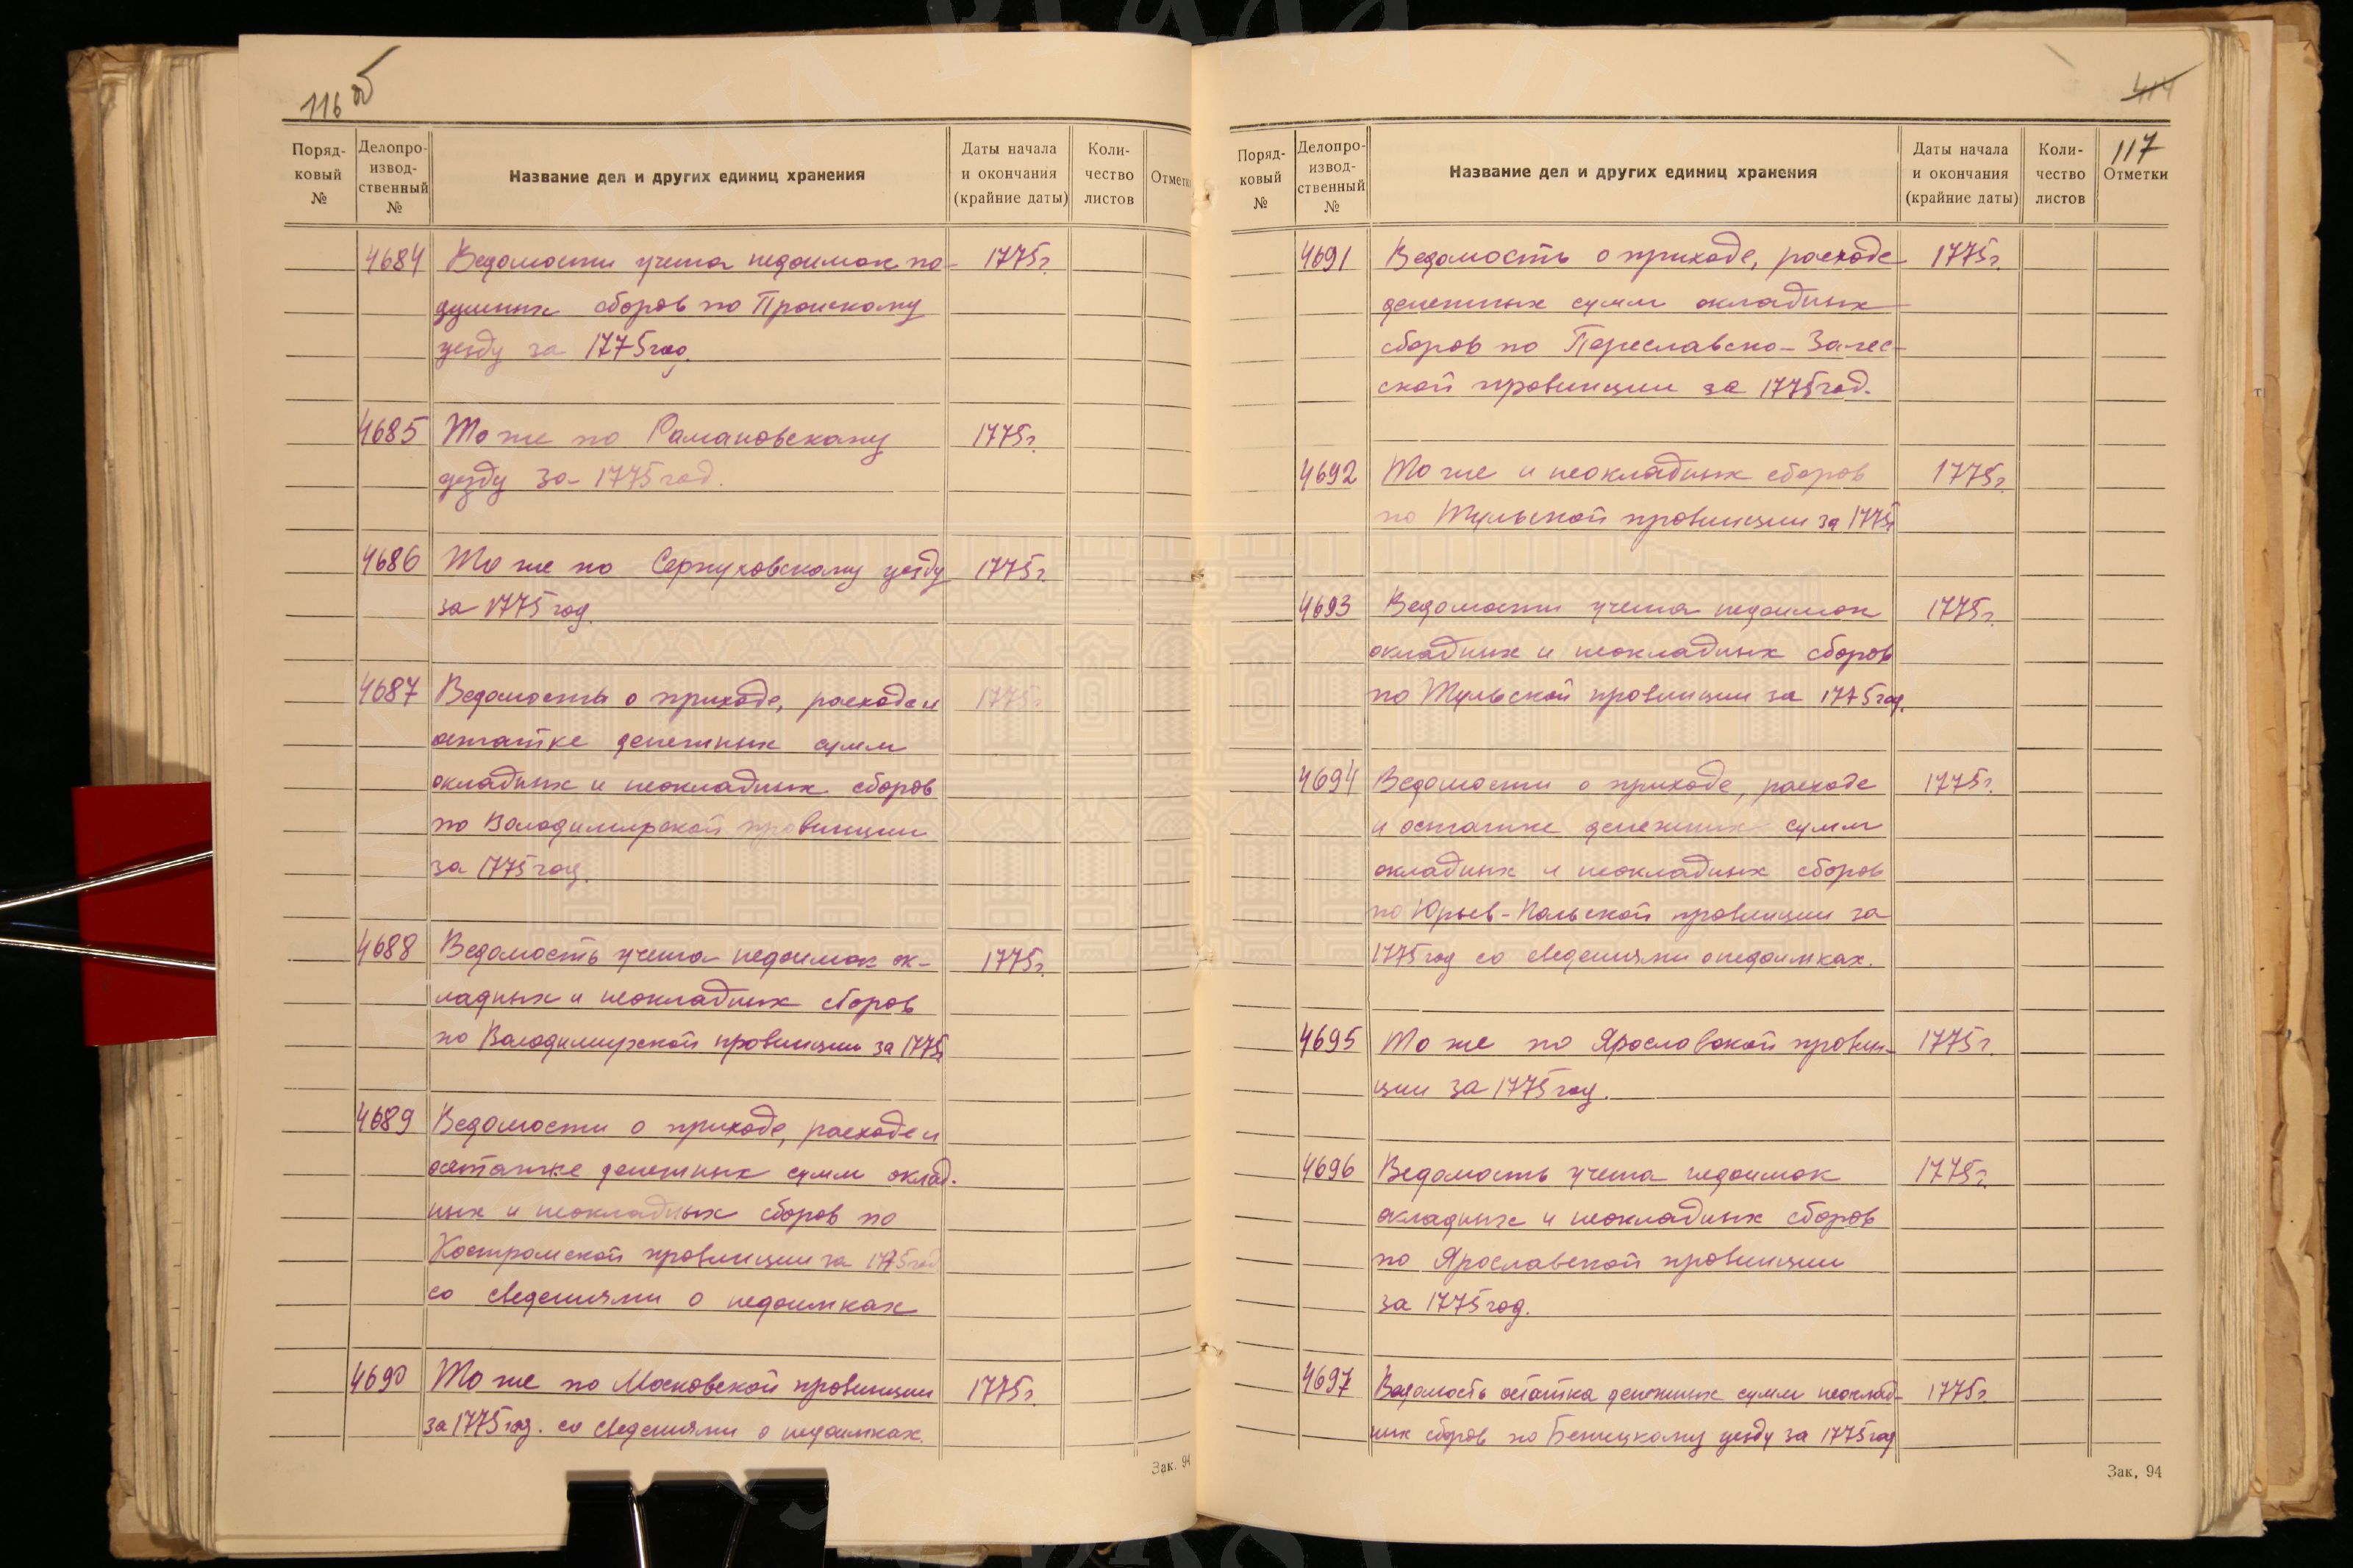 116 об
Поряд-
ковый
№
Делопро-
извод-
ственный
№
Название дел и других единиц хранения
Даты начала
и окончания
(крайние даты)
Коли-
чество
листов
Отметки
4684 Ведомости учета недоимок по- 1775г.
душных сборов по Пронскому
уезду за 1775год.
4685 То же по Романовскому 1775г.
уезду за 1775год.
4686 То же по Серпуховскому уезду 1775г.
за 1775год.
4687 Ведомость о приходе, расходе и 1775г.
остатке денежных сумм
окладных и неокладных сборов
по Володимирской провинции
за 1775год.
4688 Ведомость учета недоимок ок- 1775г.
ладных и неокладных сборов
по Володимирской провинции за 1775г.
4689 Ведомости о приходе, расходе и
остатке денежных сумм оклад-
ных и неокладных сборов по
Костромской провинции за 1775год
со сведениями о недоимках
4690 То же по Московской провинции 1775г.
за 1775год. со сведениями о недоимках.
Зак. 94
414
117
Поряд-
ковый
№
Делопро-
извод-
ственный
№
Название дел и других единиц хранения
Даты начала
и окончания
(крайние даты)
Коли-
чество
листов
Отметки
4691 Ведомость о приходе, расходе 1775г.
денежных сумм окладных
сборов по Переславско-Залес-
ской провинции за 1775год.
4692 То же и неокладных сборов 1775г.
по Тульской провинции за 1775г.
4693 Ведомости учета недоимок 1775г.
окладных и неокладных сборов
по Тульской провинции за 1775год.
4694 Ведомости о приходе, расходе 1775г.
и остатке денежных сумм
окладных и неокладных сборов
по Юрьев-Польской провинции за
1775год со сведениями о недоимках.
4695 То же по Ярославской провин- 1775г.
ции за 1775год.
4696 Ведомость учета недоимок 1775г.
окладных и неокладных сборов
по Ярославской провинции
за 1775год.
4697 Ведомость остатка денежных сумм неоклад- 1775г.
ных сборов по Бежецкому уезду за 1775год
Зак. 94